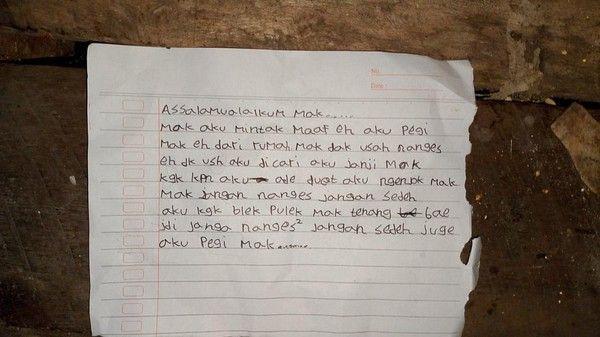 No.
Date:
Assalamualaikum Mak......
Mak aku mintak maaf eh aku pegi
Mak eh dari rumah, Mak dak usah nanges
eh dk ush aku dicari aku janji Mak
kgk kpn aku ade duet aku ngenjok Mak
Mak jangan nanges jangan sedeh
aku kgk blek pulek Mak tenang bae
jdi janga nanges² jangan sedeh juge
aku pegi Mak........